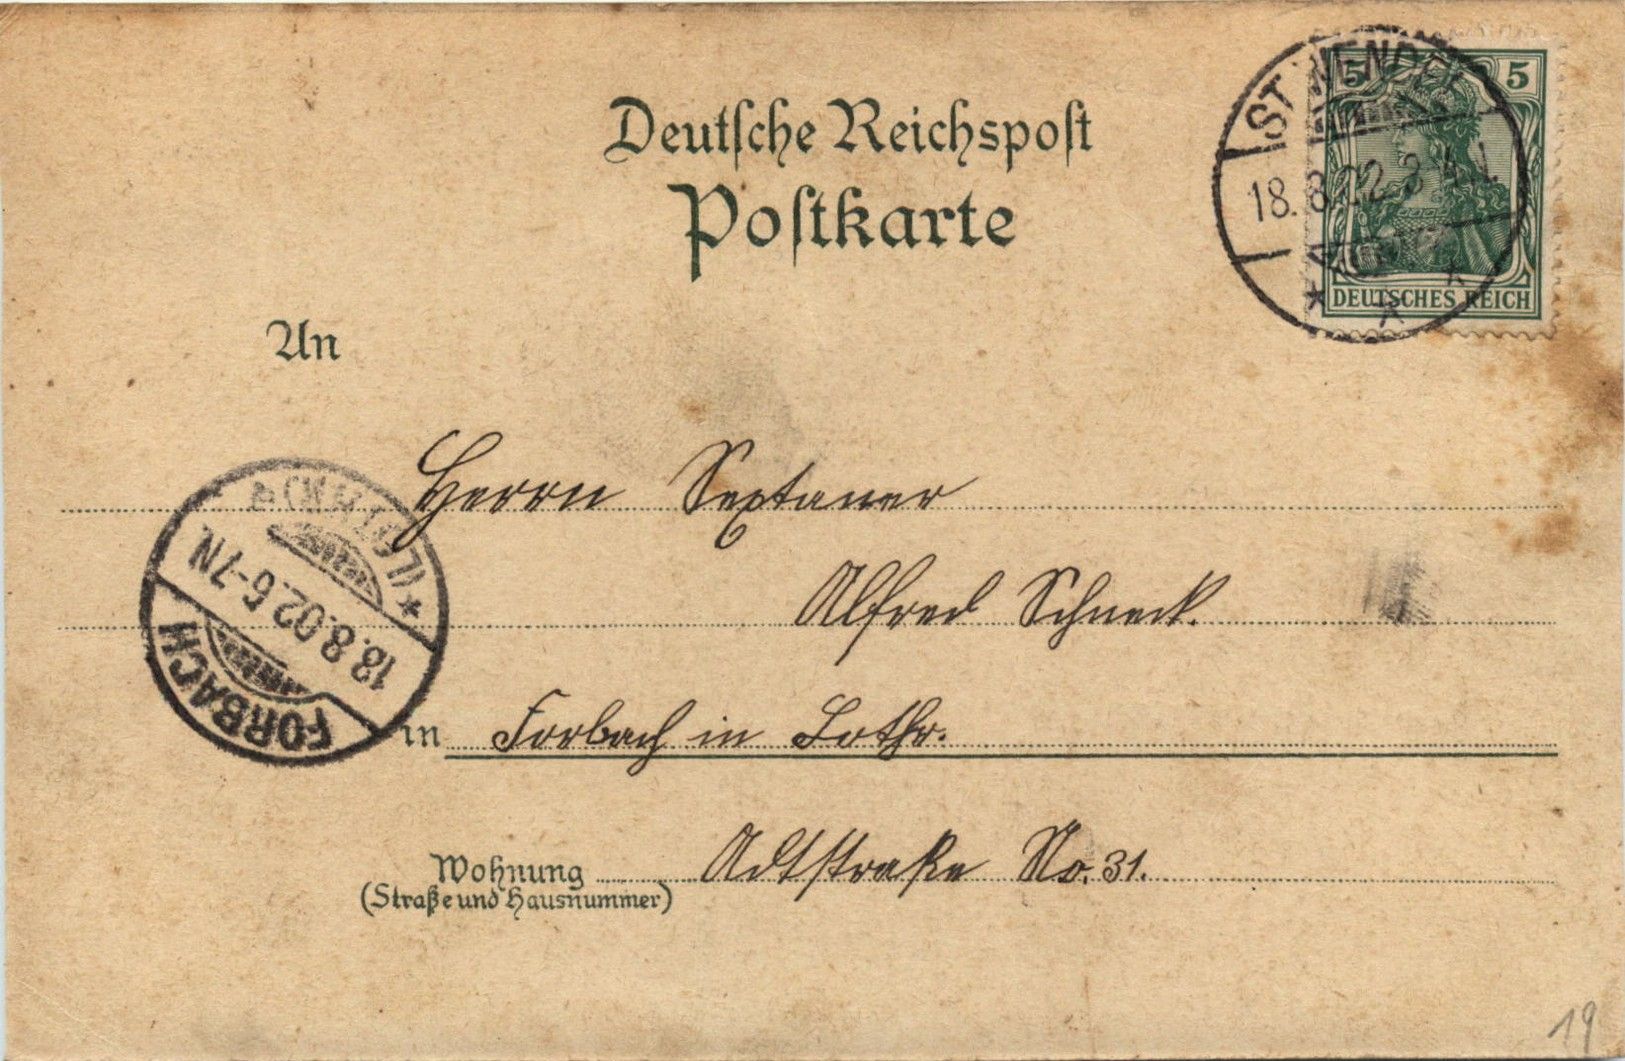 Deutsche Reichspost
Postkarte
5 5
DEUTSCHES REICH
ST. WENDEL
18.8.02.3-4 N
* * *
An
Herrn Sextaner
Alfred Schneck.
in Forbach in Lothr.
Wohnung
(Straße und Hausnummer)
Adtstraße No. 31.
FORBACH
18.8.02.6-7N.
* (LOTHR.)
19